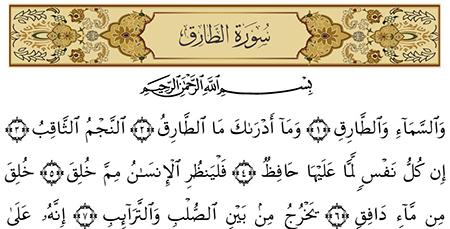 سُورَةُ الطَّارِقِ
بِسْمِ اللَّهِ الرَّحْمَٰنِ الرَّحِيمِ
وَالسَّمَآءِ وَالطَّارِقِ ﴿١﴾ وَمَآ أَدْرَىٰكَ مَا الطَّارِقُ ﴿٢﴾ النَّجْمُ الثَّاقِبُ ﴿٣﴾
إِن كُلُّ نَفْسٍ لَّمَّا عَلَيْهَا حَافِظٌ ﴿٤﴾ فَلْيَنظُرِ الْإِنسَٰنُ مِمَّ خُلِقَ ﴿٥﴾ خُلِقَ
مِن مَّآءٍ دَافِقٍ ﴿٦﴾ يَخْرُجُ مِنۢ بَيْنِ الصُّلْبِ وَالتَّرَآئِبِ ﴿٧﴾ إِنَّهُۥ عَلَىٰ